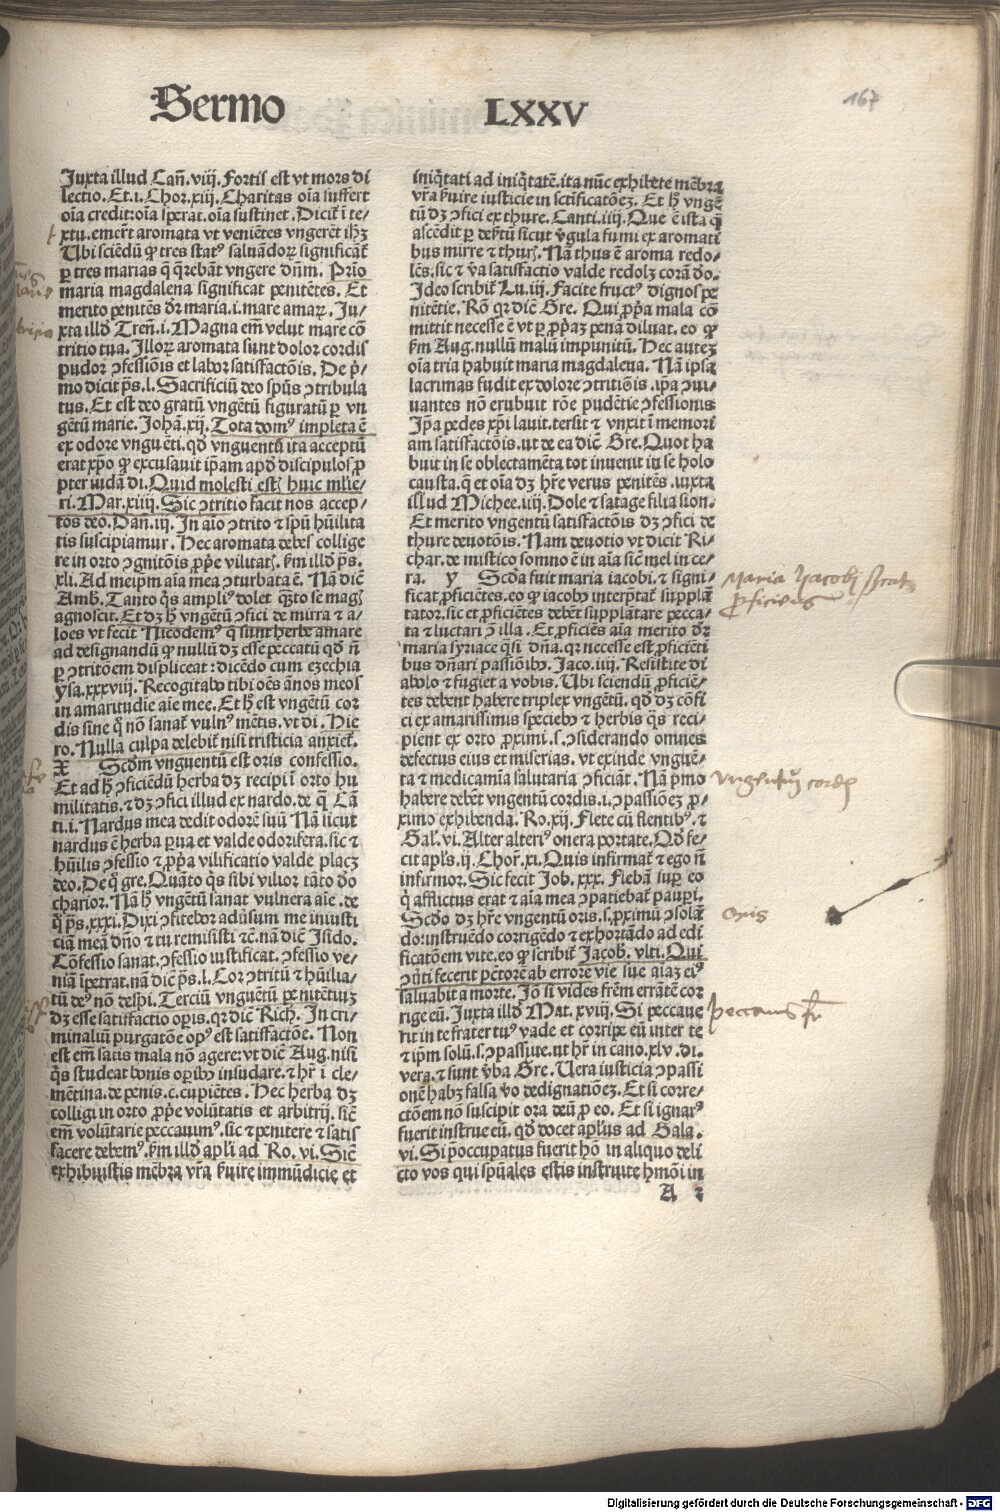 Sermo LXXV
167
Juxta illud Cañ. viij. Fortis est vt mors di
lectio. Et .i. Chor. xiij. Charitas oĩa suffert
oĩa credit: oĩa sperat. oĩa sustinet. Dicit̃ ĩ te⸗
xtu. emer̃t aromata vt veniẽtes vngerẽt ihꝫ
Ubi sciẽdũ ꝙ tres statꝰ saluãdoꝝ significãt̃
ꝑ tres marias q̃ q̃rebãt vngere dñm. Prĩo
maria magdalena significat penitẽtes. Et
merito penitẽs dr̃ maria .i. mare amaꝝ. Ju⸗
xta illđ Treñ. i. Magna em̃ velut mare cõ
tritio tua. Illoꝝ aromata sunt dolor cordis
pudor ↄfessiõis et labor satisfactõis. De p̃⸗
mo dicit p̃s. l. Sacrificiũ deo spũs ↄtribula
tus. Et est deo gratũ vngẽtũ figuratũ ꝑ vn
gẽtũ marie. Johã. xij. Tota domꝰ impleta ẽ
ex odore vnguẽti. qđ vnguentũ ita acceptũ
erat xp̃o ꝙ excusauit ip̃am apđ discipulos ꝓ
pter iudã di. Quid molesti est̃ huic mlie⸗
ri. Mar. xiiij. Sic ↄtritio facit nos accep⸗
tos deo. Dañ. iij. In aĩo ↄtrito ⁊ spũ hũilita
tis suscipiamur. Hec aromata debes collige
re in orto ↄgnitõis ꝓp̃e vilitat̃. km̃ illđ p̃s.
xli. Ad meip̃m aĩa mea ↄturbata ẽ. Nã dic̃
Amb. Tanto q̃s ampliꝰ dolet q̃ꝫto se magꝭ
agnoscit. Et dꝫ ḣ vngẽtũ ↄfici de mirra ⁊ a⸗
loes vt fecit Nicodemꝰ q̃ sunt herbe amare
ad designandũ ꝙ nullũ dꝫ esse peccatũ qđ ñ
ꝑ ↄtritõem displiceat: dicẽdo cum ezechia
ysa. xxxviij. Recogitabo tibi oẽs ãnos meos
in amaritudie aĩe mee. Et ḣ est vngẽtũ cor
dis sine q̃ nõ sanat̃ vulnꝰ mẽtis. vt di. Hie
ro. Nulla culpa delebit̃ nisi tristicia anxiet̃.
X Scđm vnguentũ est oris confessio.
Et ad ḣ ↄficiẽdũ herba dꝫ recipi ĩ orto hu
militatis. ⁊ dꝫ ↄfici illud ex nardo. de q̃ Cã
ti. i. Nardus mea dedit odorẽ suũ Nã sicut
nardus ẽ herba ꝑua et valde odorifera. sic ⁊
hũilis ↄfessio ⁊ ꝓp̃a vilificatio valde placꝫ
deo. De q̃ gre. Quãto q̃s sibi vilior tãto đo
charior. Nã ḣ vngẽtũ sanat vulnera aĩe. de
q̃ p̃s. xxxi. Dixi ↄfitebor adũsum me iniusti
ciã meã dño ⁊ tu remisisti ⁊c̃. nã dic̃ Isido.
Cõfessio sanat. ↄfessio iustificat. ↄfessio ve⸗
niã ĩpetrat. nã dic̃ p̃s. l. Cor ↄtritũ ⁊ hũilia⸗
tũ deꝰ nõ despi. Terciũ vngẽtũ penitẽtiuꝫ
dꝫ esse satisfactio oꝑis. qr dic̃ Rich. In cri⸗
minaliũ purgatõe opꝰ est satisfactõe. Non
est em̃ satis mala nõ agere: vt dic̃ Aug. nisi
q̃s studeat bonis oꝑibꝰ insudare. ⁊ hr̃ i cle⸗
mẽtina. de penis. c. cupiẽtes. Hec herba dꝫ
colligi in orto ꝓp̃e volũtatis et arbitrij. sic̃
em̃ volũtarie peccauimꝰ. sic ⁊ penitere ⁊ satis
facere debemꝰ. km̃ illđ apl̃i ad Ro. vi. Sic̃
exhibuistis mẽbra vr̃a k̃uire immũdicie et
iniq̃tati ad iniq̃tatẽ. ita nũc exhibete mẽbra
vr̃a k̃uire iusticie in sctificatõeꝫ. Et ḣ vngẽ
tũ dꝫ ↄfici ex thure. Canti. iij. Que ẽ ista q̃
ascẽdit ꝑ deẽrtũ sicut v̾gula fumi ex aromati
bus mirre ⁊ thur̃. Nã thus ẽ aroma redo⸗
lẽs. sic ⁊ v̾a satisfactio valde redolꝫ corã đo.
Ideo scribit̃ Lu. iij. Facite fructꝰ dignos pe
nitẽtie. Rõ qr dic̃ Gre. Qui ꝓp̃a mala com
mittit necesse ẽ vt ꝑ ꝓp̃aꝫ penã diluat. eo ꝙ
km̃ Aug. nullũ malũ impunitũ. Hec auteꝫ
oĩa tria habuit maria magdalena. Nã ipsa
lacrimas fudit ex dolore ↄtritiõis. ip̃a ↄui⸗
uantes nõ erubuit rõe pudẽtie ↄfessionis
Ip̃a pedes xp̃i lauit. tersit ⁊ vnxit ĩ memori
am satisfactõis. vt de ea dic̃ Gre. Quot ha
buit in se oblectamẽta tot inuenit in se holo
causta. q̃ et oĩa dꝫ hr̃e verus penitẽs. iuxta
illud Michee. iiij. Dole ⁊ satage filia sion.
Et merito vngentũ satisfactõis dꝫ ↄfici de
thure deuotõis. Nam deuotio vt dicit Ri⸗
char. de mistico somno ẽ in aĩa sic̃ mel in ce⸗
ra. y Scđa fuit maria iacobi. ⁊ signi⸗
ficat ꝓficiẽtes. eo ꝙ iacobꝰ interp̃tat̃ supplã
tatoꝛ. sic et ꝓficiẽtes debẽt supplãtare pecca⸗
ta ⁊ luctari ↄ̃ illa. Et ꝓficiẽs aĩa merito dr̃
maria syriace q̃si dña. qr necesse est ꝓficiẽti
bus dñari passiõibꝰ. Jaco. iiij. Resistite di
abolo ⁊ fugiet a vobis. Ubi sciendũ ꝓficiẽ⸗
tes debent habere triplex vngẽtũ. qđ dꝫ cõfi
ci ex amarissimis speciebꝰ ⁊ herbis q̃s reci⸗
pient ex orto ꝓximi. s. ↄsiderando omnes
defectus eius et miserias. vt exinde vnguẽ⸗
ta ⁊ medicamĩa salutaria ↄficiãt. Nã p̃mo
habere debẽt vngentũ cordis. i. ↄpassiõeꝫ ꝓ⸗
ximo exhibenda. Ro. xij. Flete cũ flentibꝰ. ⁊
Gal. vi. Alter alteriꝰ onera portate. Qđ fe⸗
cit apl̃s. ij. Chor̃. xi. Quis infirmat̃ ⁊ ego ñ
infirmor. Sic fecit Job. xxx. Flebã sup̃ eo
q̃ afflictus erat ⁊ aĩa mea ↄpatiebat̃ pauꝑi.
Scđo dꝫ hr̃e vngentũ oris. s. ꝓximũ ↄsolan̄
do: instruẽdo corrigẽdo ⁊ exhortãdo ad edi
ficatõem vite. eo ꝙ scribit̃ Jacob. vlti. Qui
ↄũti fecerit pctõrẽ ab errore vie sue aĩaꝫ eiꝰ
saluabit a morte. Jõ si vides fr̃em errãtẽ cor
rige eũ. Juxta illđ Mat. xviij. Si peccaue
rit in te frater tuꝰ vade et corripe eũ inter te
⁊ ip̃m solũ. s. ↄpassiue. vt hr̃ in cano. xlv. di.
vera. ⁊ sunt v̾ba Gre. Uera iusticia ↄpassi
onẽ habꝫ falsa v̾o dedignatiõeꝫ. Et si corre⸗
ctõem nõ suscipit ora deũ ꝓ eo. Et si ignarꝰ
fuerit instrue eũ. qđ docet apl̃us ad Gala.
vi. Si p̃occupatus fuerit hõ in aliquo deli
cto vos qui spũales estis instruite hmõi in
A 2
Maria Jacobj
ꝓficiens
vngentũ cordis
oris
peccans fr̃
Digitalisierung gefördert durch die Deutsche Forschungsgemeinschaft - DFG